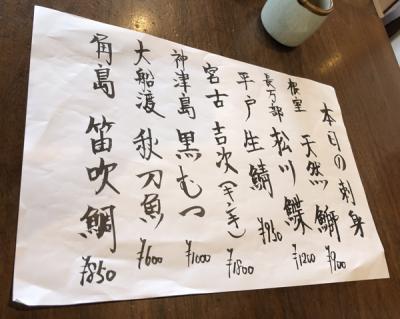 本日の刺身
根室 天然鰤 ¥900
長万部 松川鰈 ¥1200
平戸 生鯖 ¥950
宮古 吉次(キンキ) ¥1800
神津島 黒むつ ¥1000
大船渡 秋刀魚 ¥600
角島 笛吹鯛 ¥850